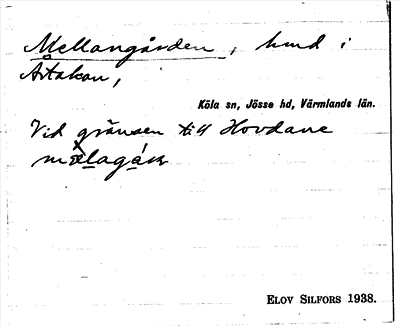 Mellangården, hmd i
Köla sn, Jösse hd, Värmlands län.
Vid gränsen till Hovdane
ELOV SILFORS 1938.